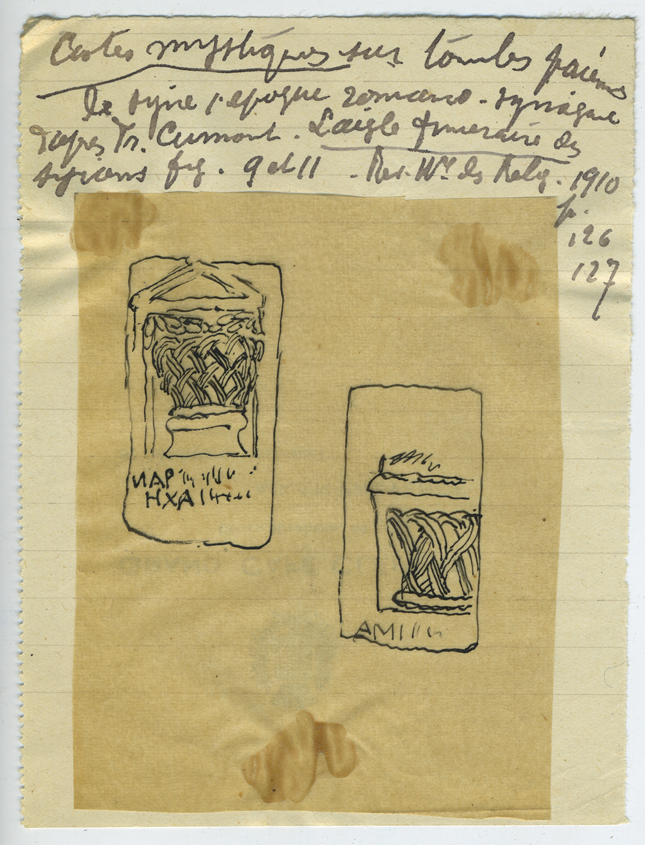 Cistes mystiques sur tombes païennes
de Syrie l'époque romano-syriaque
d'après Fr. Cumont. L'aigle funéraire des
syriens fig. 9 et 11 - Rev. Hist. des Relig. 1910
p.
126
127
ИАР
НХАІ
ΑΜΙ